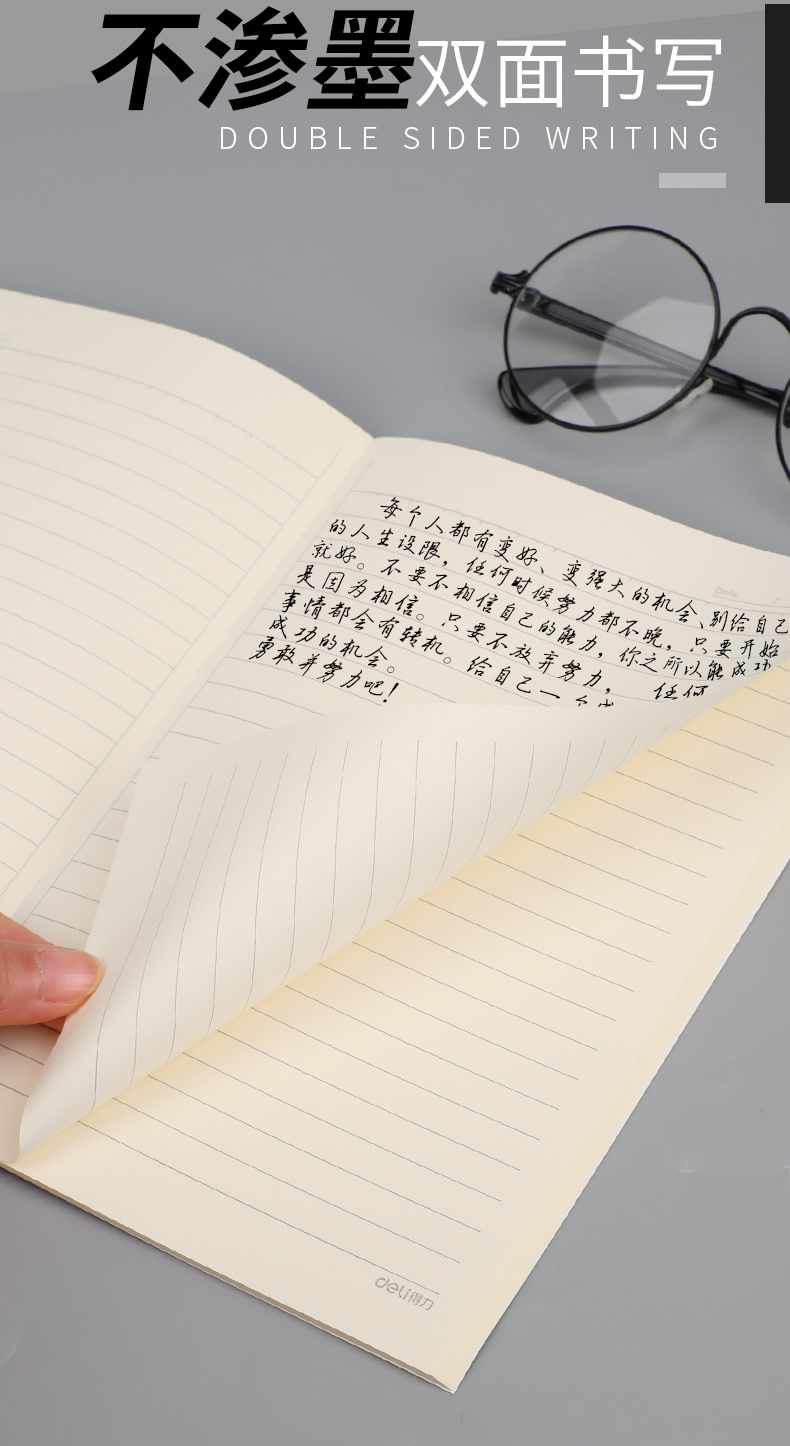 不渗墨双面书写
DOUBLE SIDED WRITING
Date.
每个人都有变好、变强大的机会、别给自己
的人生设限，任何时候努力都不晚，只要开始
就好。不要不相信自己的能力，你之所以能成功
是因为相信。只要不放弃努力，任何
事情都会有转机。给自己一个
成功的机会。
勇敢并努力吧！
deli得力